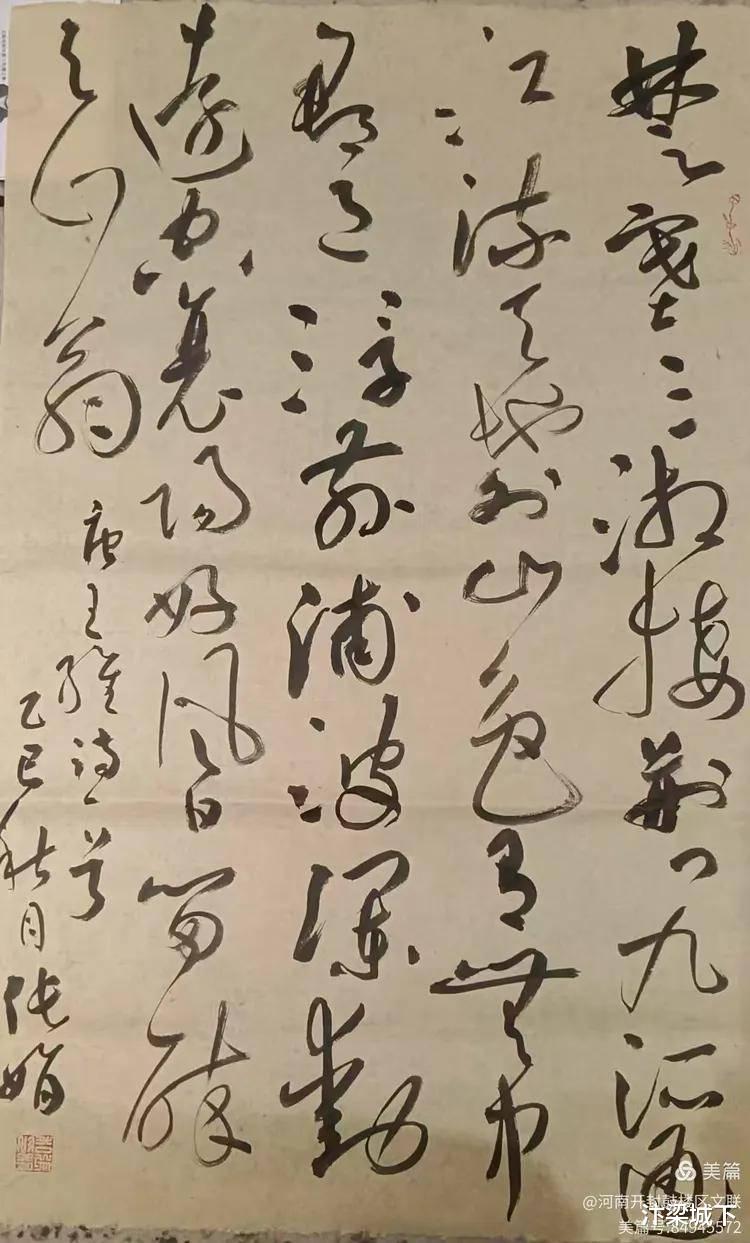 楚塞三湘接荆门九派通
江流天地外山色有無中
郡邑浮前浦波澜動
遠空襄阳好风日留醉
与山翁
唐王维诗一首
乙巳秋月张娟
美篇
@河南开封鼓楼区文联
美篇号:84945572
汴梁城下